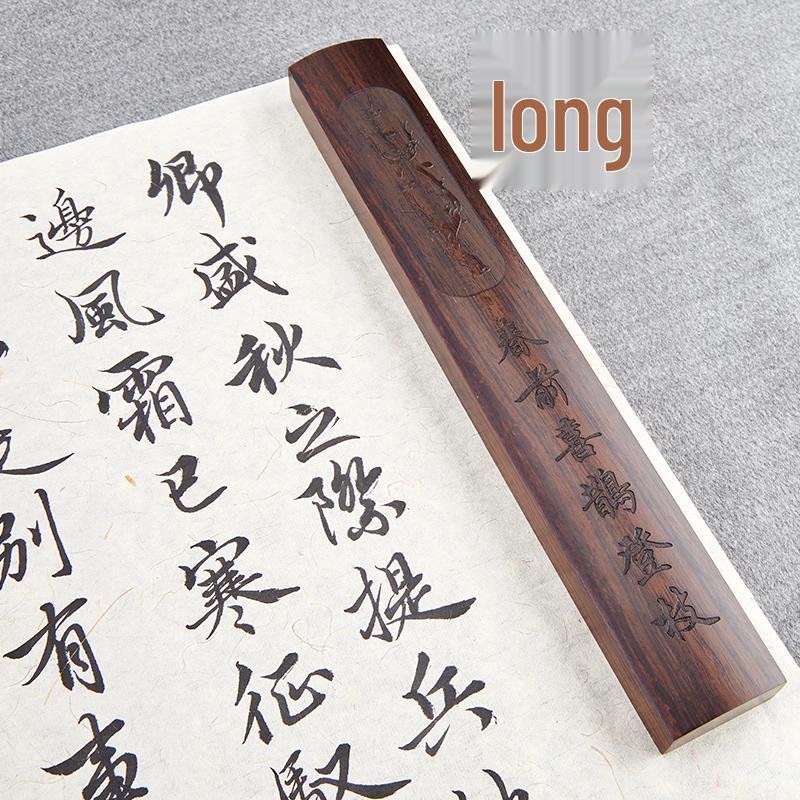 long
春前喜鵲登枝
卿盛秋之際提兵
邊風霜已寒征馭
别有事